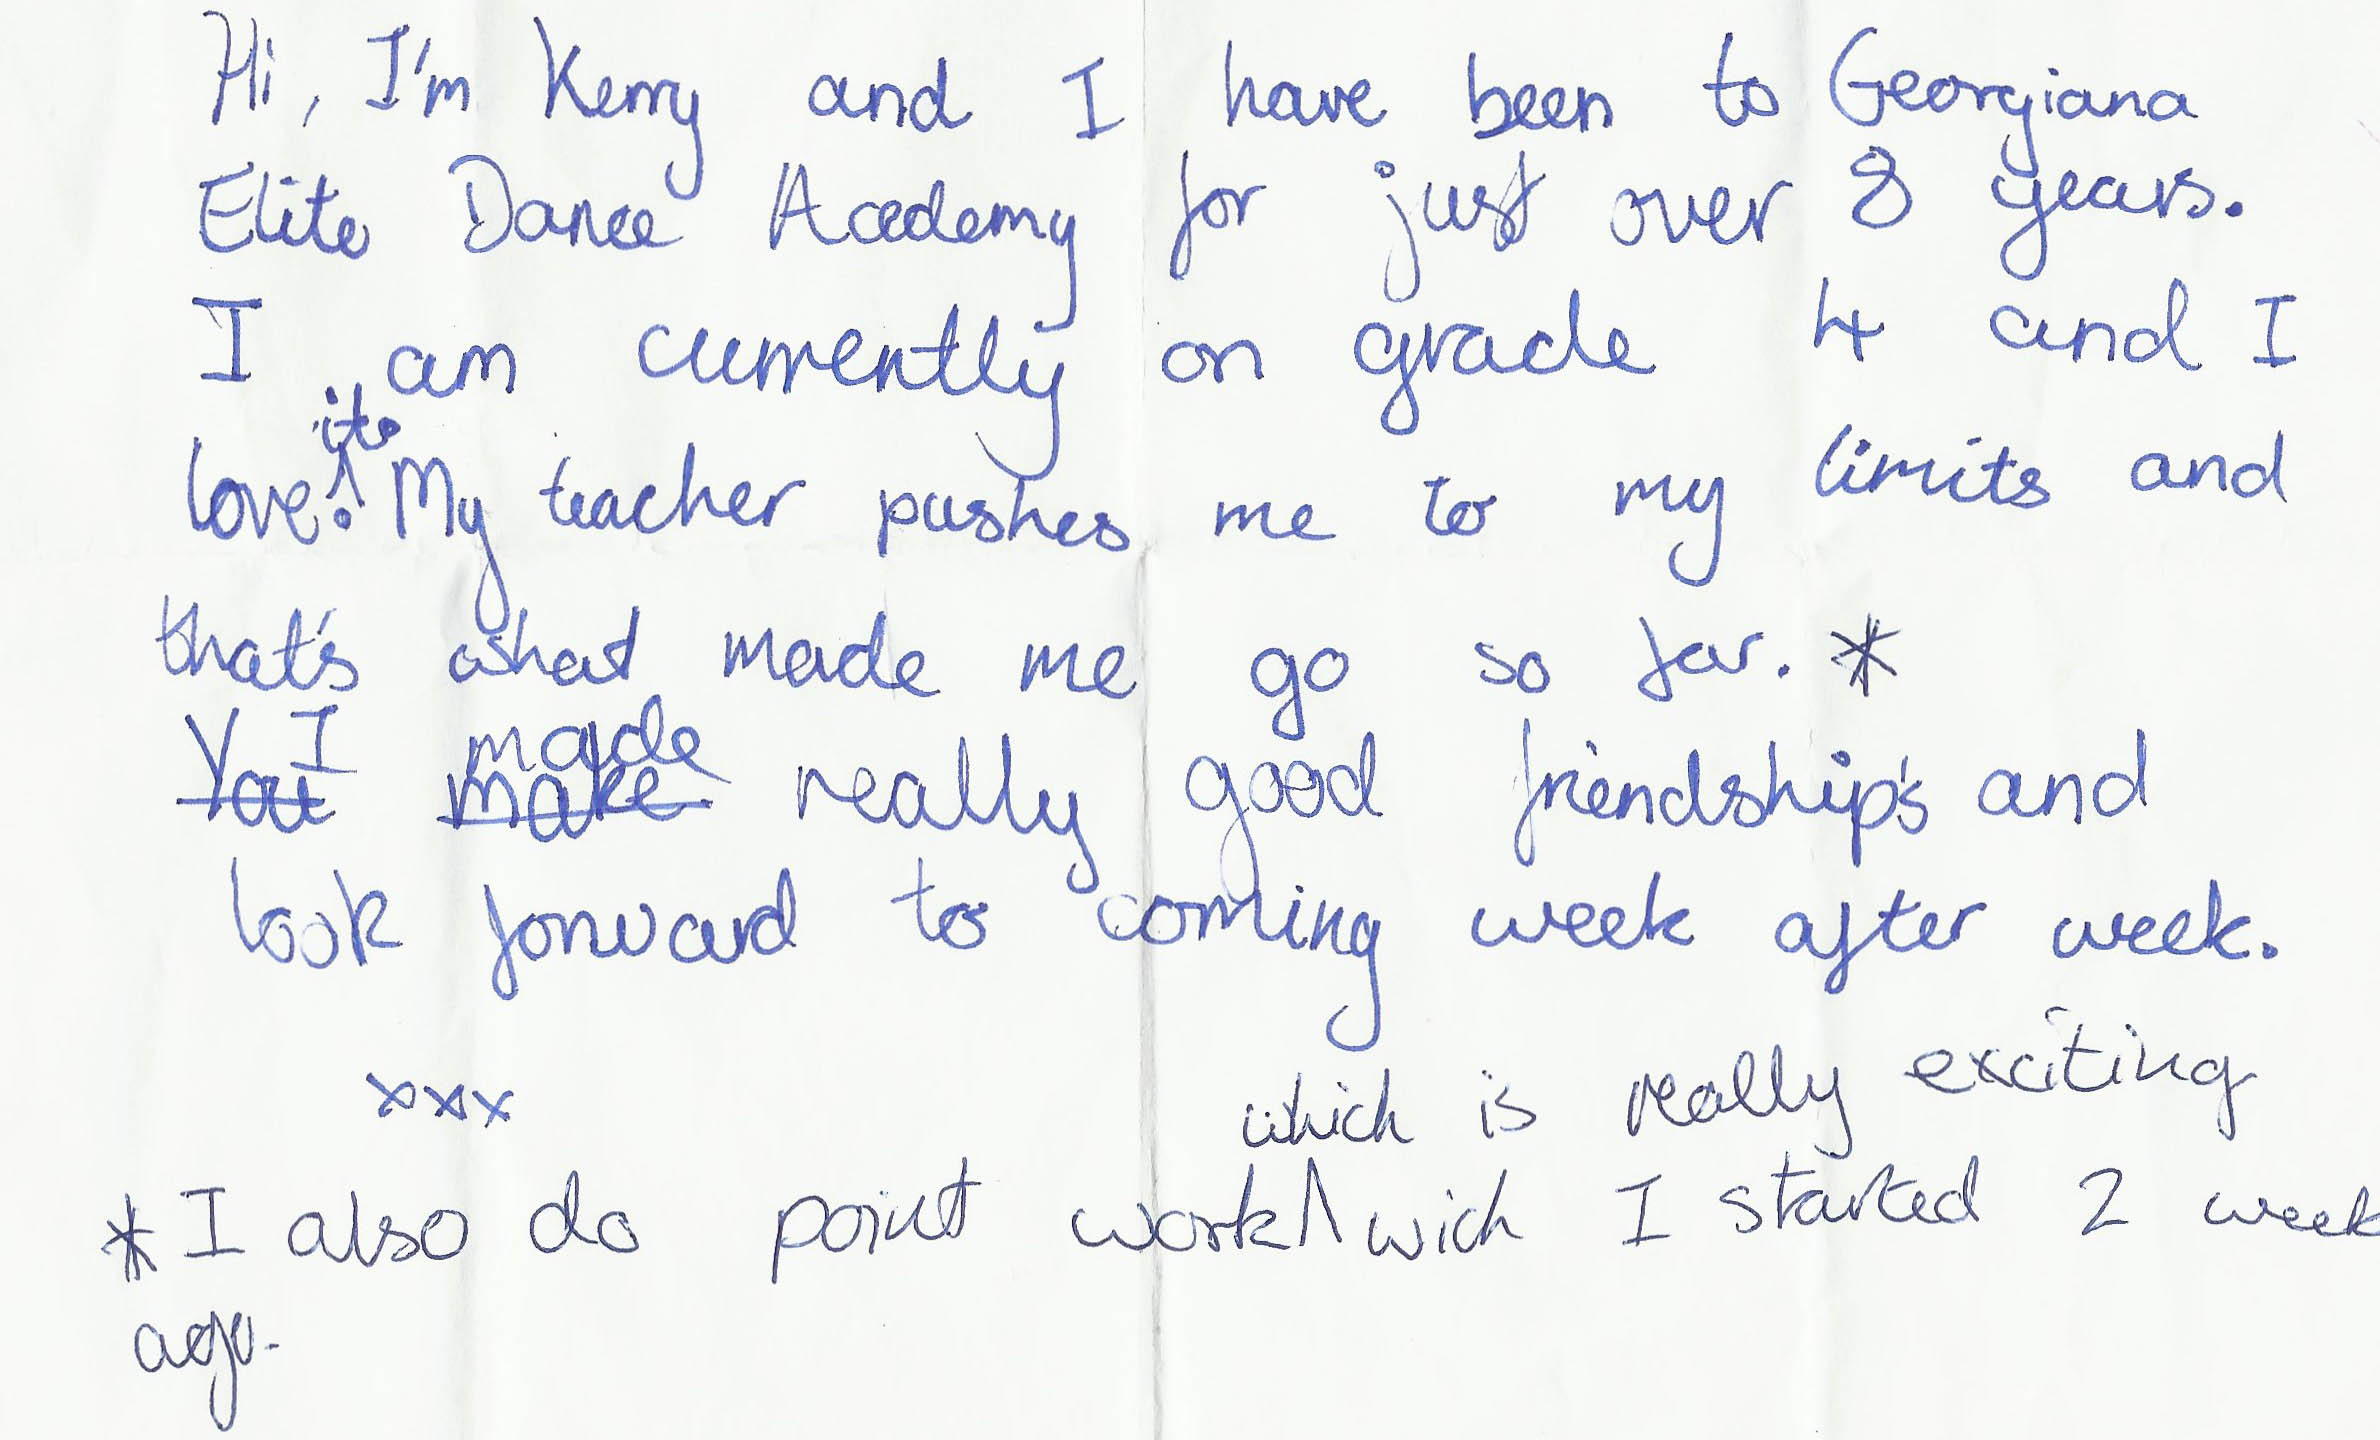 Hi, I'm Kerry and I have been to Georgiana
Elite Dance Academy for just over 8 years.
I am currently on grade 4 and I
love it. My teacher pushes me to my limits and
that's what made me go so far. *
I made
You make really good friendship's and
look forward to coming week after week.
xxx
which is really exciting
* I also do point work wich I started 2 week
ago.